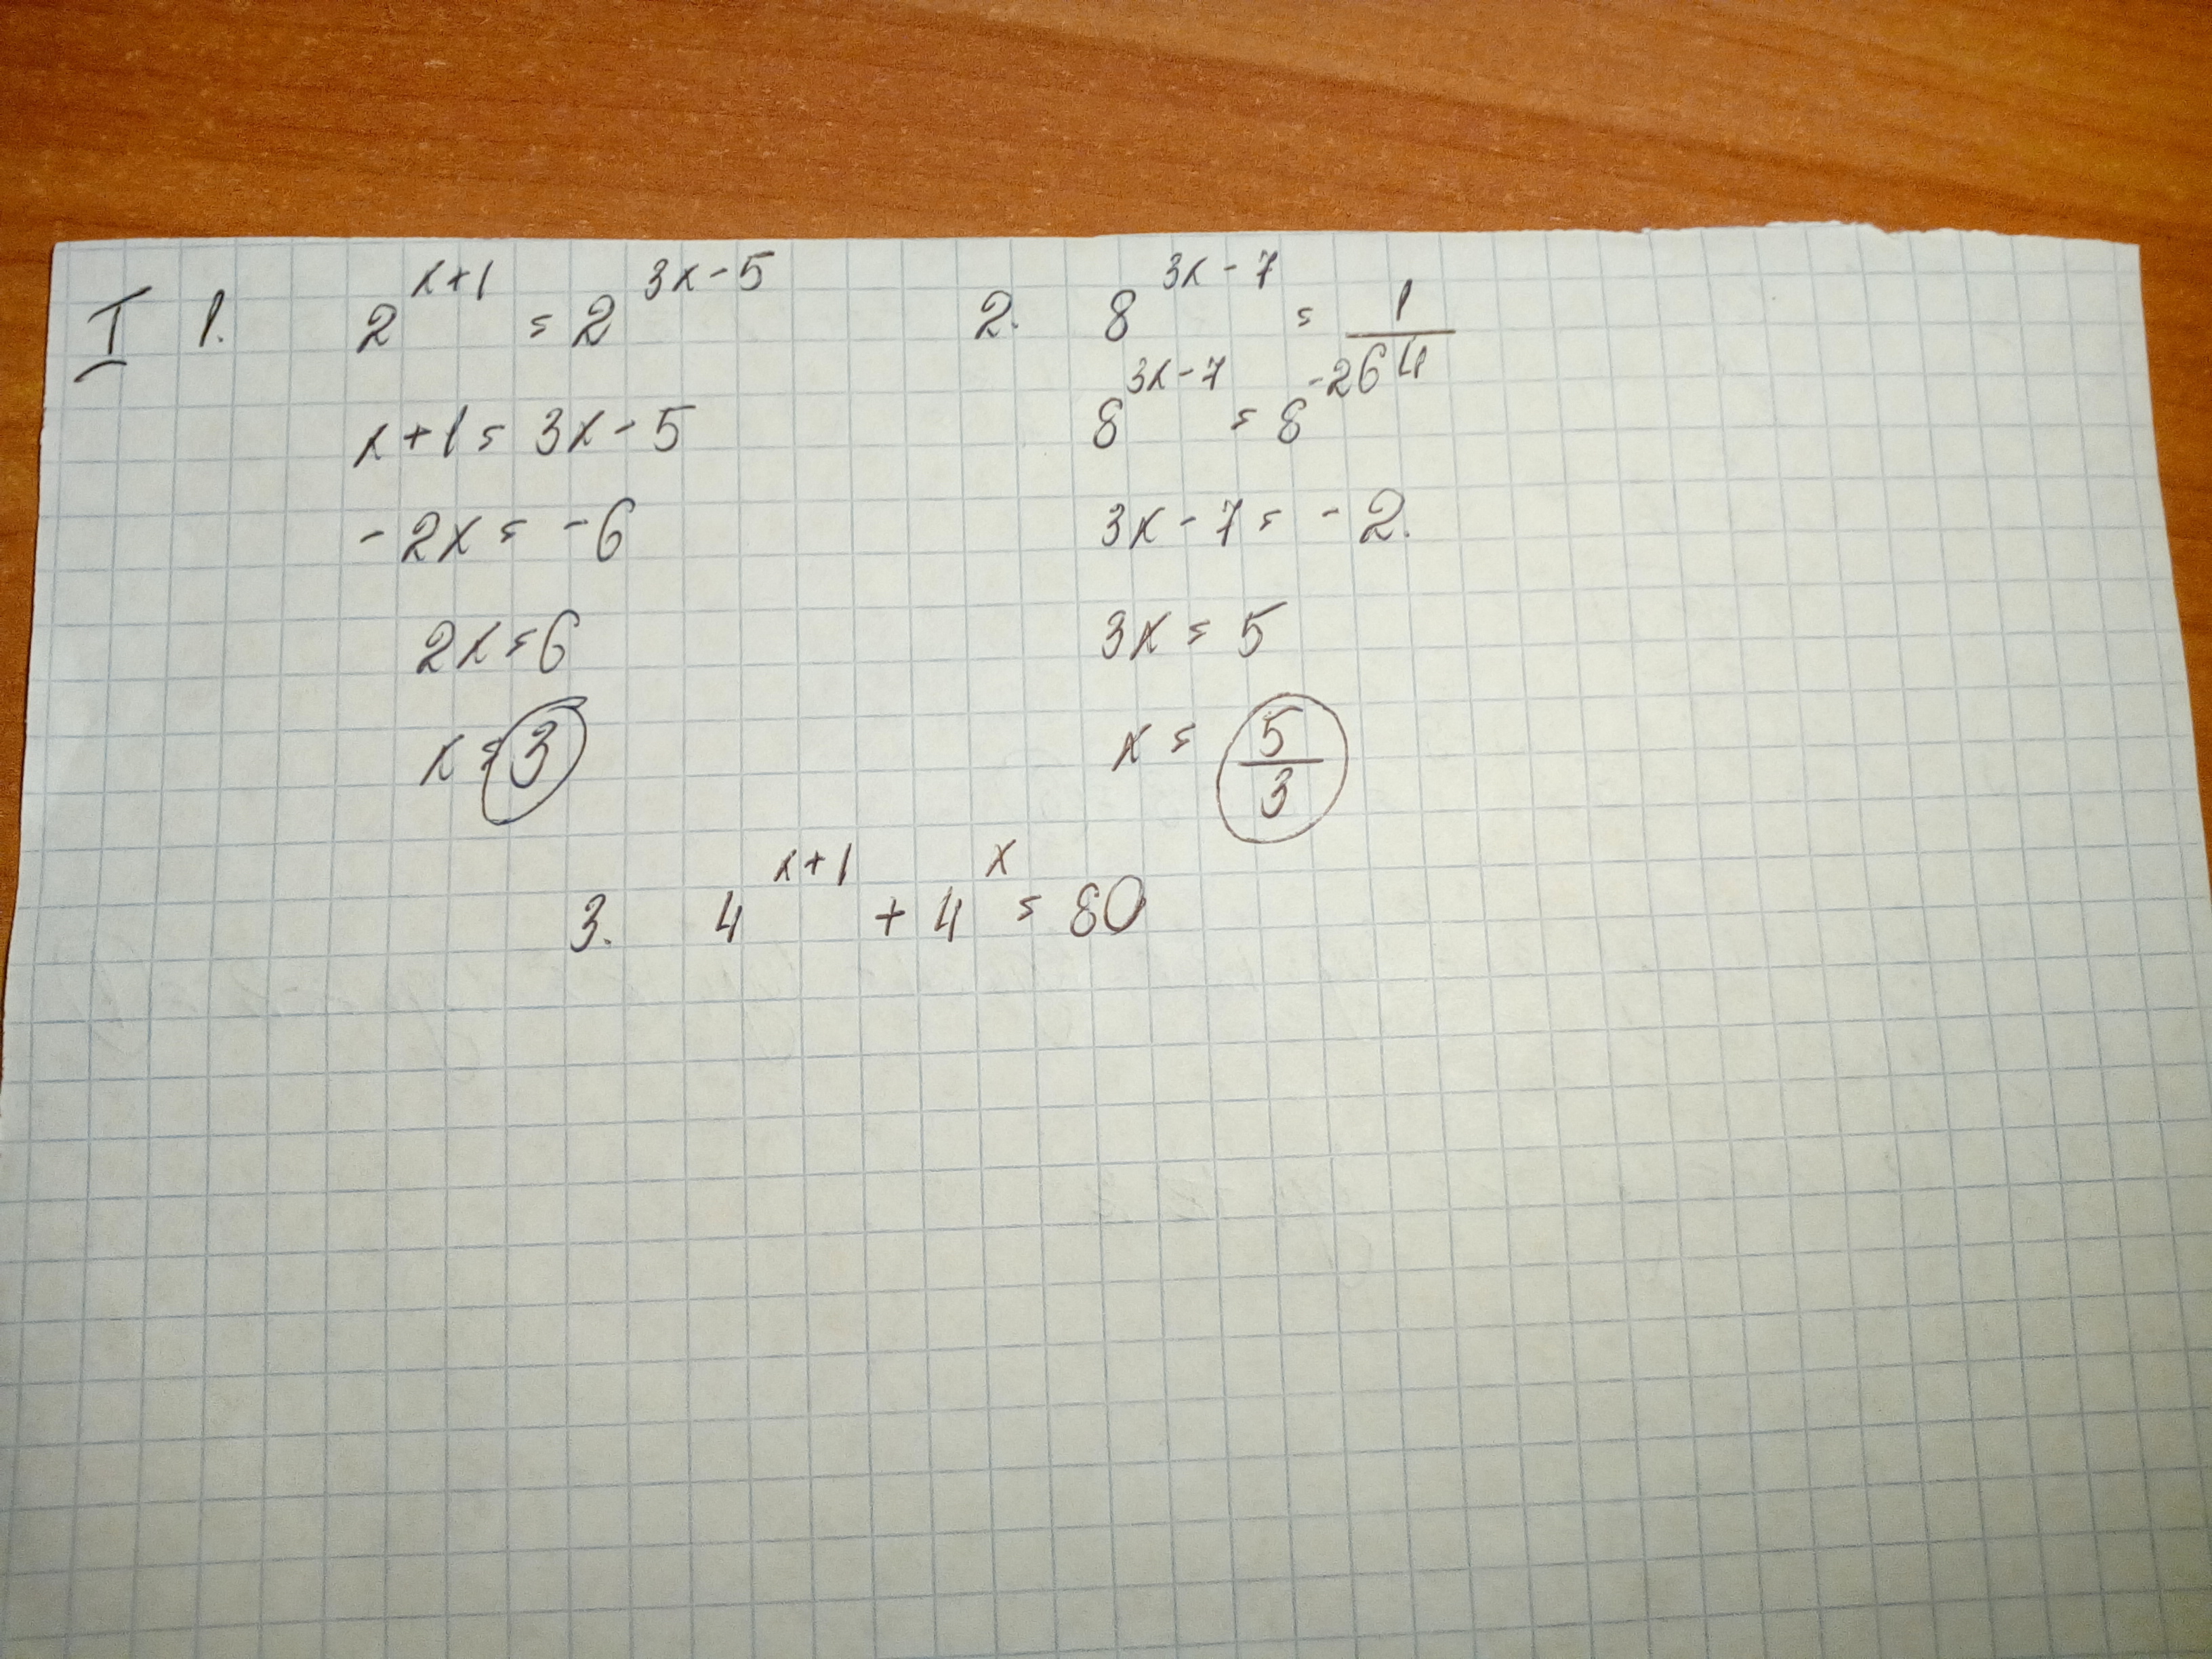 I 1. 2^{x+1} = 2^{3x-5}
x+1 = 3x-5
-2x = -6
2x = 6
x = 3
2. 8^{3x-7} = \frac{1}{64}
8^{3x-7} = 8^{-2}
3x-7 = -2.
3x = 5
x = \frac{5}{3}
3. 4^{x+1} + 4^{x} = 80